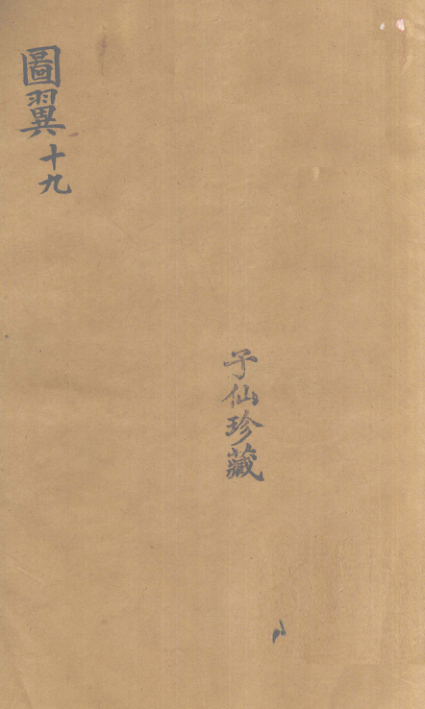 圖翼十九
子仙珍藏